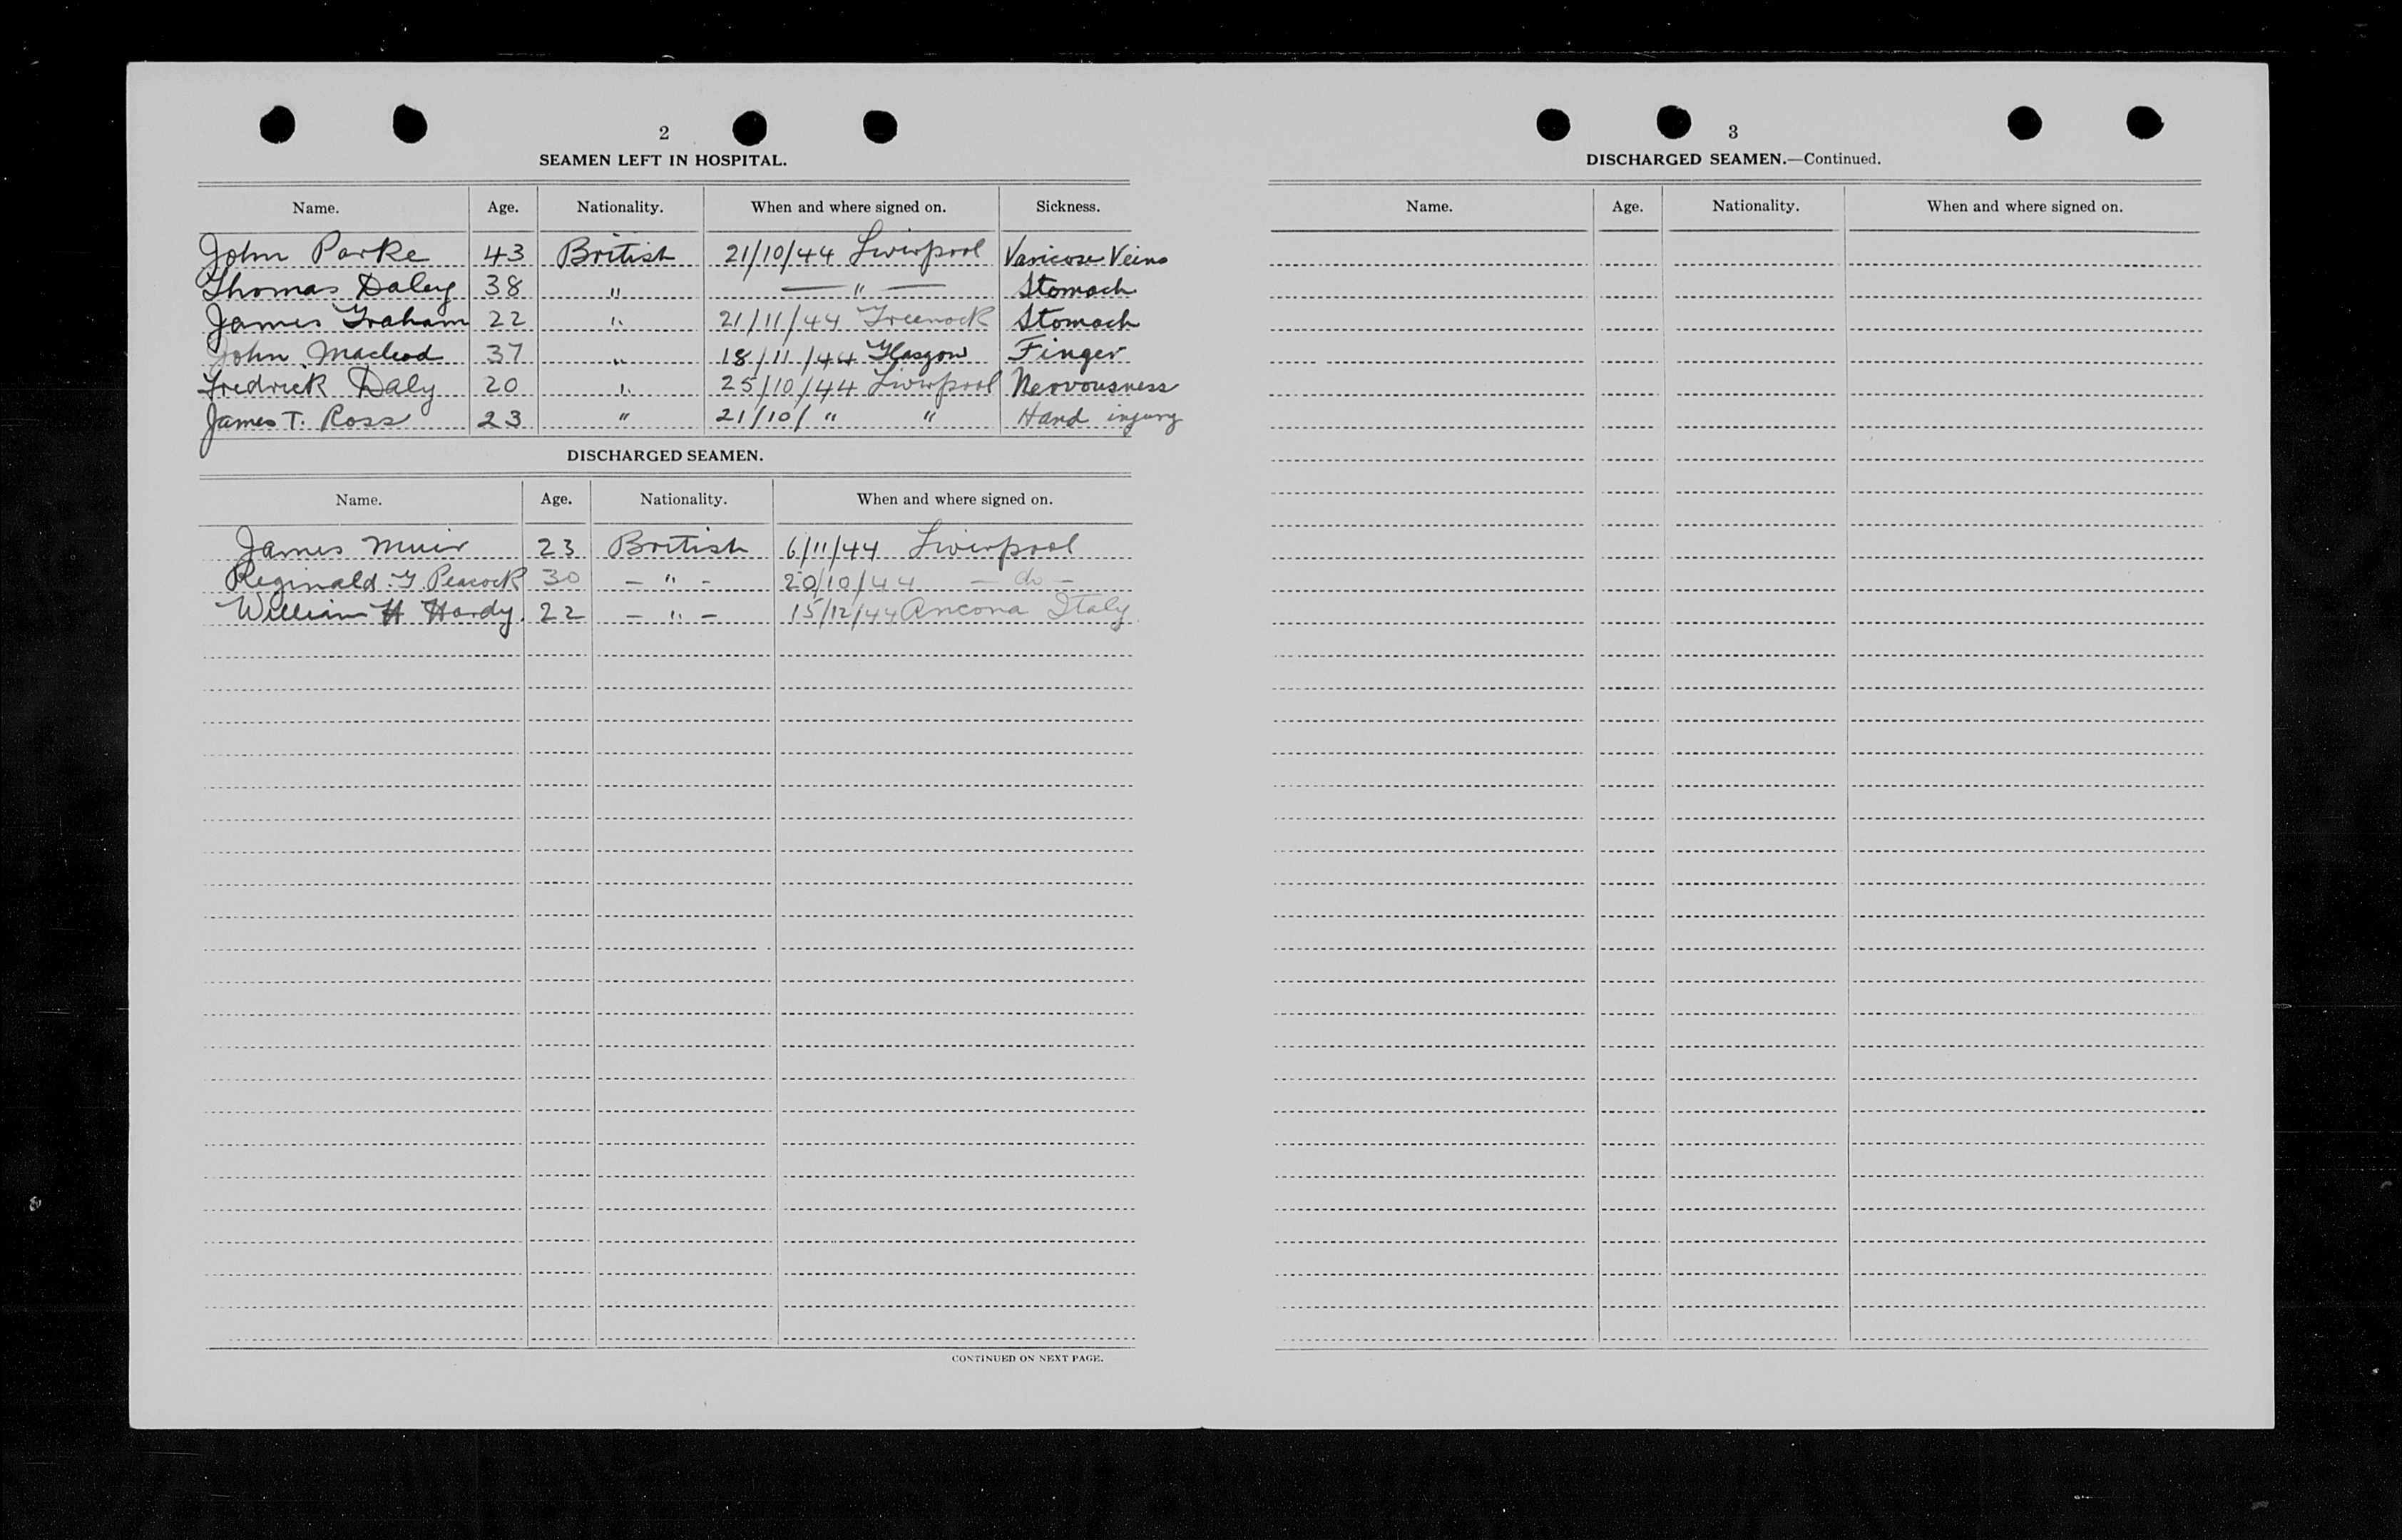 2
SEAMEN LEFT IN HOSPITAL.
Name. Age. Nationality. When and where signed on. Sickness.
John Parke 43 British 21/10/44 Liverpool Varicose Veins
Thomas Daley 38 " — " — Stomach
James Graham 22 " 21/11/44 Greenock Stomach
John Macleod 37 " 18/11/44 Glasgow Finger
Fredrick Daly 20 " 25/10/44 Liverpool Nervousness
James T. Ross 23 " 21/10/ " " Hand injury
DISCHARGED SEAMEN.
Name. Age. Nationality. When and where signed on.
James Muir 23 British 6/11/44 Liverpool
Reginald G Peacock 30 - " - 20/10/44 - do -
William H Hardy. 22 - " - 15/12/44 Ancona Italy
CONTINUED ON NEXT PAGE.
3
DISCHARGED SEAMEN.—Continued.
Name. Age. Nationality. When and where signed on.